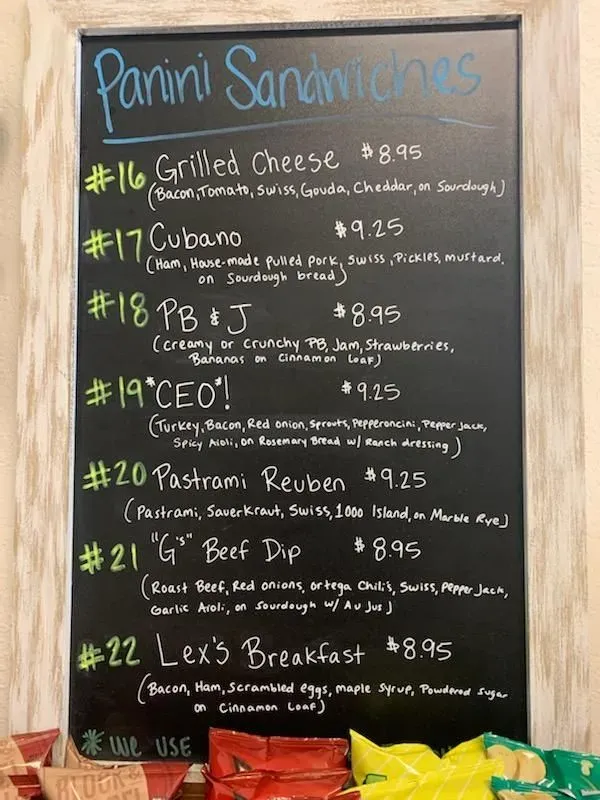 Panini Sandwiches
#16 Grilled Cheese $8.95
(Bacon, Tomato, Swiss, Gouda, Cheddar, on Sourdough)
#17 Cubano $9.25
(Ham, House-made pulled pork, swiss, Pickles, mustard,
on Sourdough bread)
#18 PB & J $8.95
(creamy or crunchy PB, Jam, Strawberries,
Bananas on cinnamon loaf)
#19 *CEO*! $9.25
(Turkey, Bacon, Red onion, Sprouts, Pepperoncini, Pepper Jack,
Spicy Aioli, on Rosemary Bread w/ Ranch dressing)
#20 Pastrami Reuben $9.25
(Pastrami, Sauerkraut, Swiss, 1000 Island, on Marble Rye)
#21 "G's" Beef Dip $8.95
(Roast Beef, Red onions, ortega Chili's, Swiss, Pepper Jack,
Garlic Aioli, on Sourdough w/ Au Jus)
#22 Lex's Breakfast $8.95
(Bacon, Ham, Scrambled eggs, maple syrup, Powdered sugar
on Cinnamon Loaf)
* WE USE